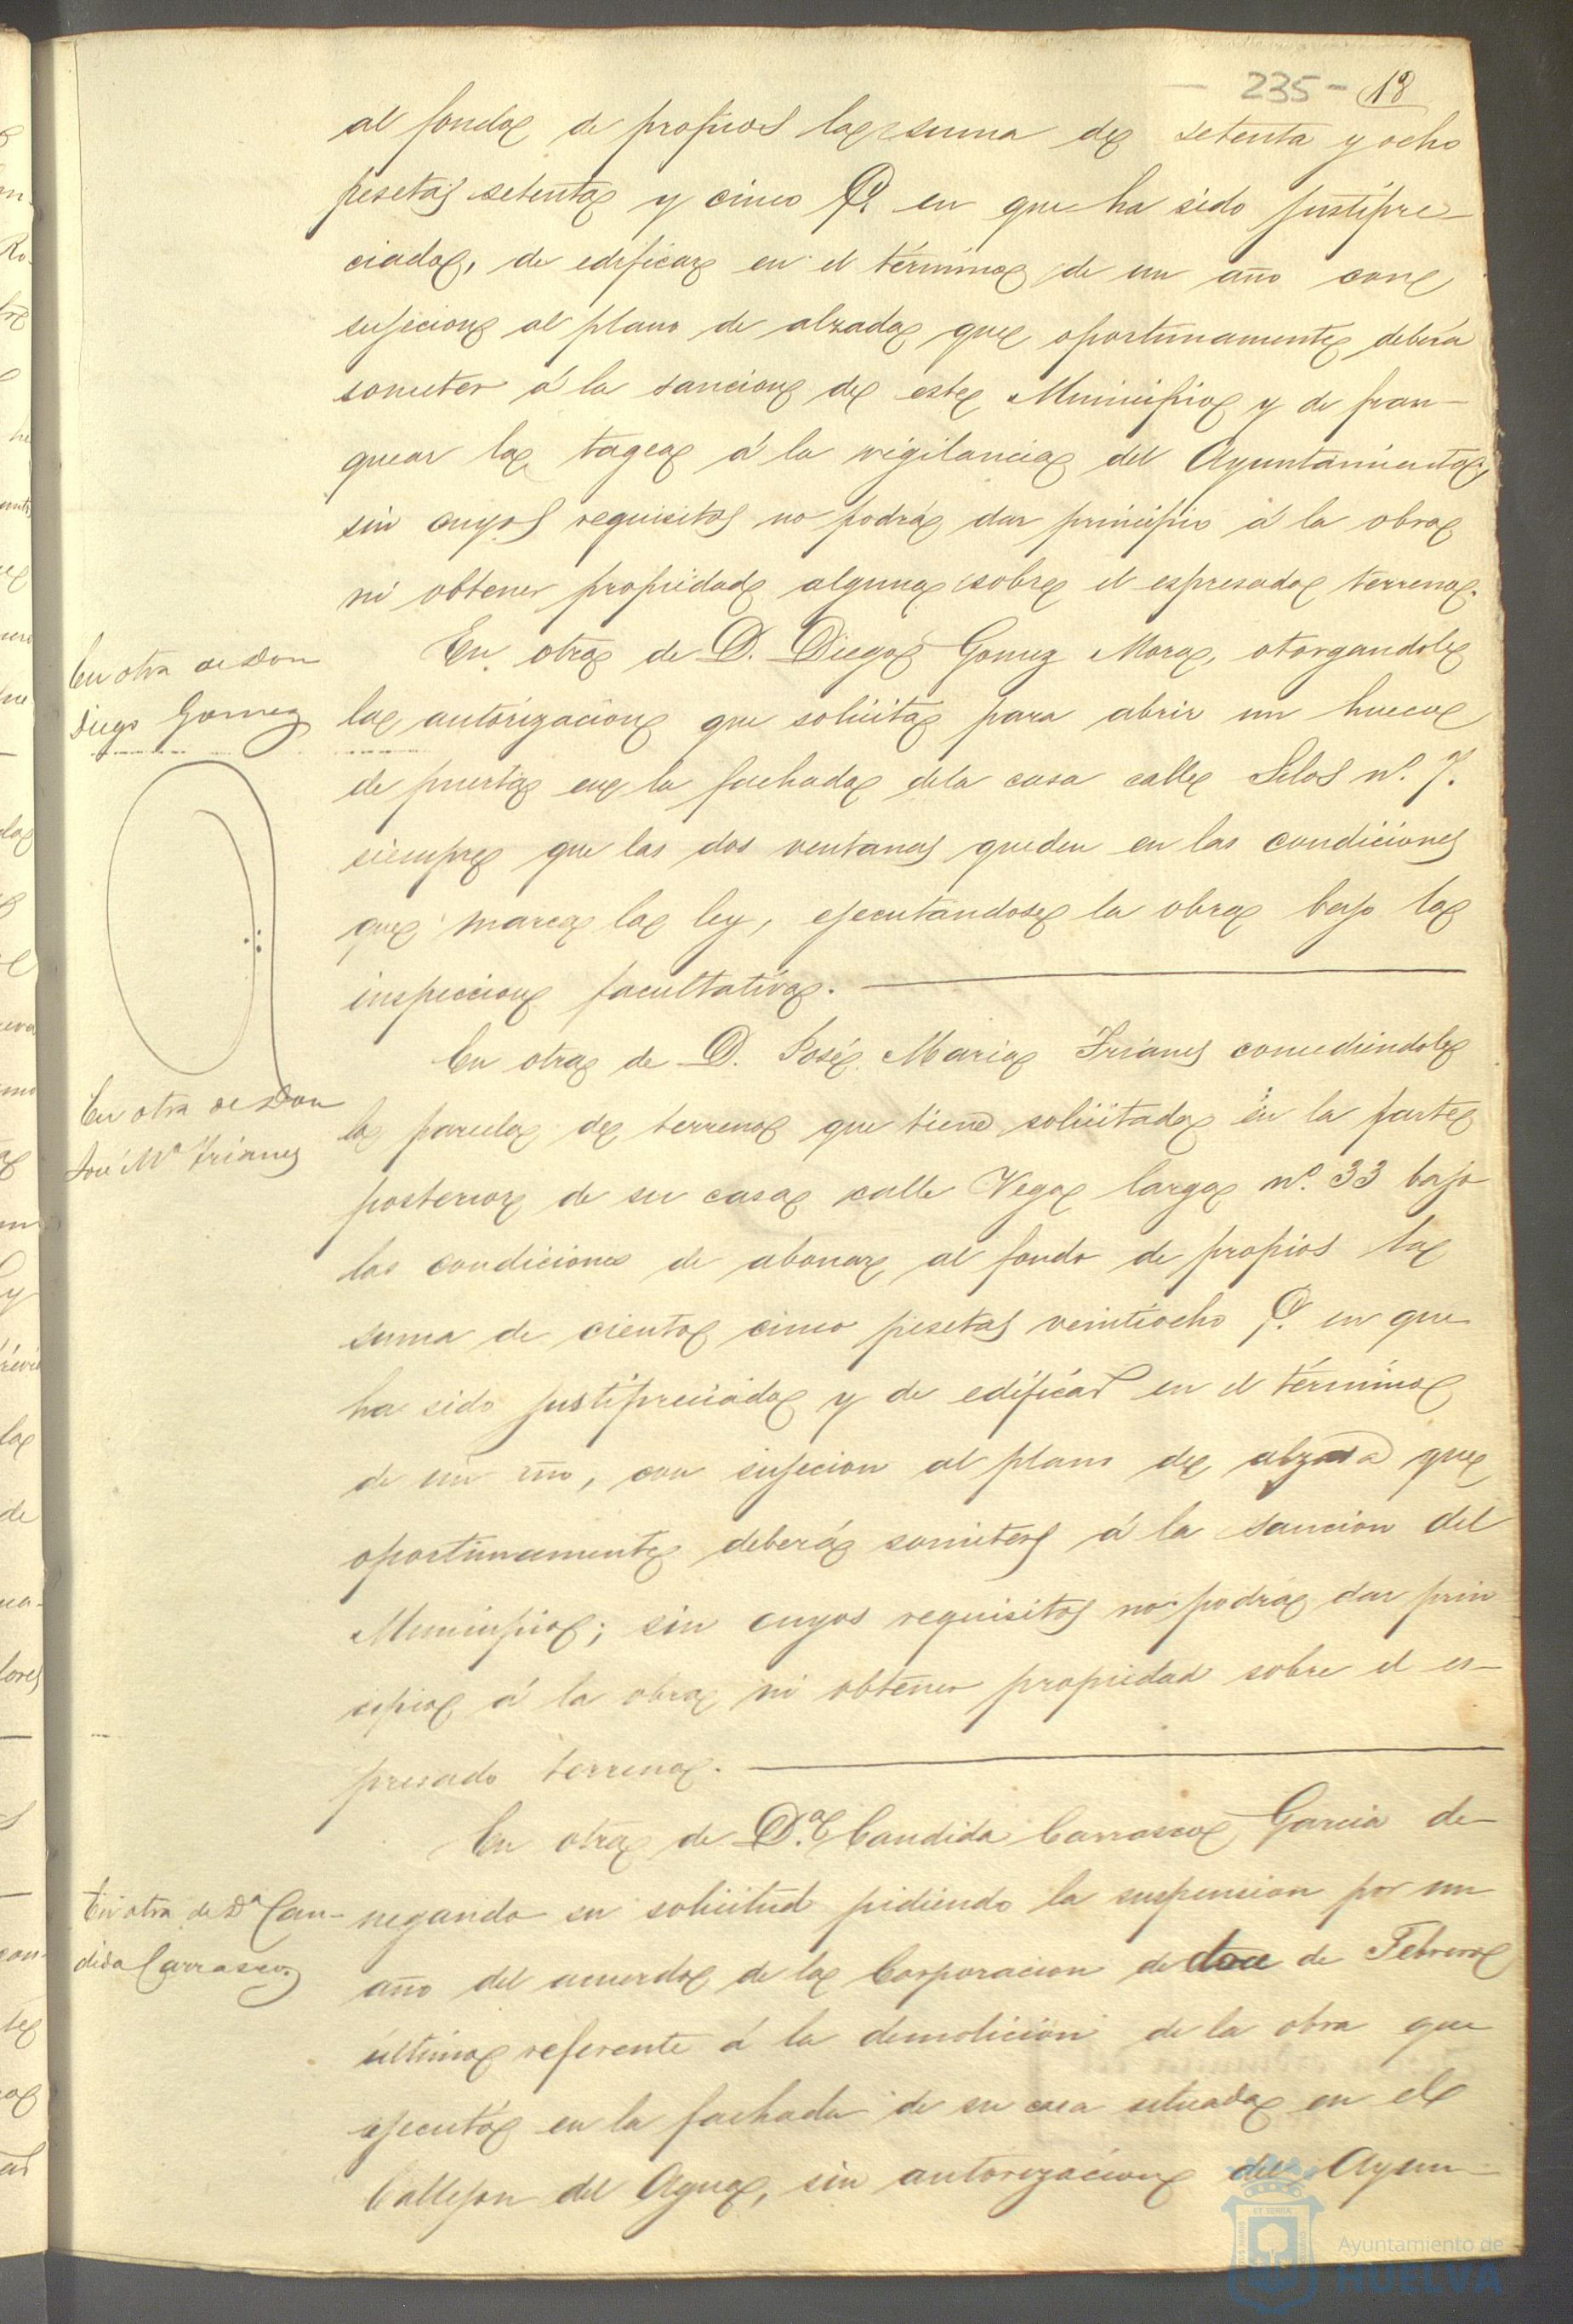 235- 18
al fondo de propios la suma de setenta y ocho
pesetas setenta y cinco Cs en que ha sido justipre-
ciado, de edificar en el término de un año con
sujecion al plano de alzada que oportunamente deberá
someter á la sancion de este Municipio y de fran-
quear la tagea á la vigilancia del Ayuntamiento,
sin cuyos requisitos no podrá dar principio á la obra
ni obtener propiedad alguna sobre el espresado terreno.
En otra de Don
Diego Gomez
En otra de D. Diego Gomez Mora, otorgandole
la autorizacion que solicita para abrir un hueco
de puerta en la fachada dela casa calle Silos nº. 7.
siempre que las dos ventanas queden en las condiciones
que marca la ley, ejecutandose la obra bajo la
inspeccion facultativa.
En otra de Don
José Mª Trianes
En otra de D. José Maria Trianes concediendole
la parcela de terreno que tiene solicitada en la parte
posterior de su casa calle Vega larga nº. 33 bajo
las condiciones de abonar al fondo de propios la
suma de ciento cinco pesetas veintiocho Cs. en que
ha sido justipreciado y de edificar en el término
de un año, con sujecion al plano de alzada que
oportunamente deberá someter á la sancion del
Municipio; sin cuyos requisitos no podrá dar prin
cipio á la obra ni obtener propiedad sobre el es-
presado terreno.
En otra de Dª Can-
dida Carrasco
En otra de D.ª Candida Carrasco Garcia de-
negando su solicitud pidiendo la suspension por un
año del acuerdo de la Corporacion de doce de Febrero
último referente á la demolicion de la obra que
ejecutó en la fachada de su casa situada en el
Callejon del Agua, sin autorizacion del Ayun-
Ayuntamiento de
HUELVA